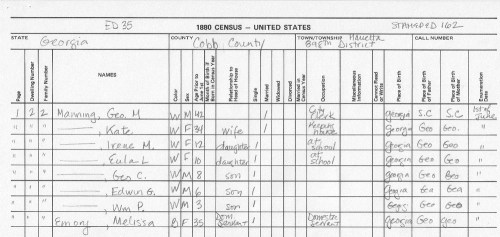 ED 35
1880 CENSUS – UNITED STATES
STAMPED 162
STATE COUNTY TOWN/TOWNSHIP CALL NUMBER
Georgia Cobb County Marietta
District
Page Dwelling Number Family Number NAMES Color Sex Age Prior to June 1st Month of Birth if Born in Census Year Relationship to Head of House Single Married Widowed Divorced Married in Census Year Occupation Miscellaneous Information Cannot Read or Write Place of Birth Place of Birth of Father Place of Birth of Mother Enumeration Date
1 2 2 Manning, Geo. M W M 42 / City Clerk Georgia S.C S.C 1st of June
" " " ———, Kate W F 34 Wife / Keeping house Georgia Geo Geo. "
" " " ———, Irene M. W F 12 daughter / at school Georgia Geo Geo "
" " " ———, Eula L W F 10 daughter / at school Georgia Geo Geo "
" " " ———, Geo C. W M 8 son / Georgia Geo Geo "
" " " ———, Edwin G. W M 6 son / Geo Geo "
" " " ———, Wm P. W M 3 son / Geo Geo "
" " " Emory, Melissa B F 35 Dom. Servant / Domestic Servant Georgia Geo Geo "